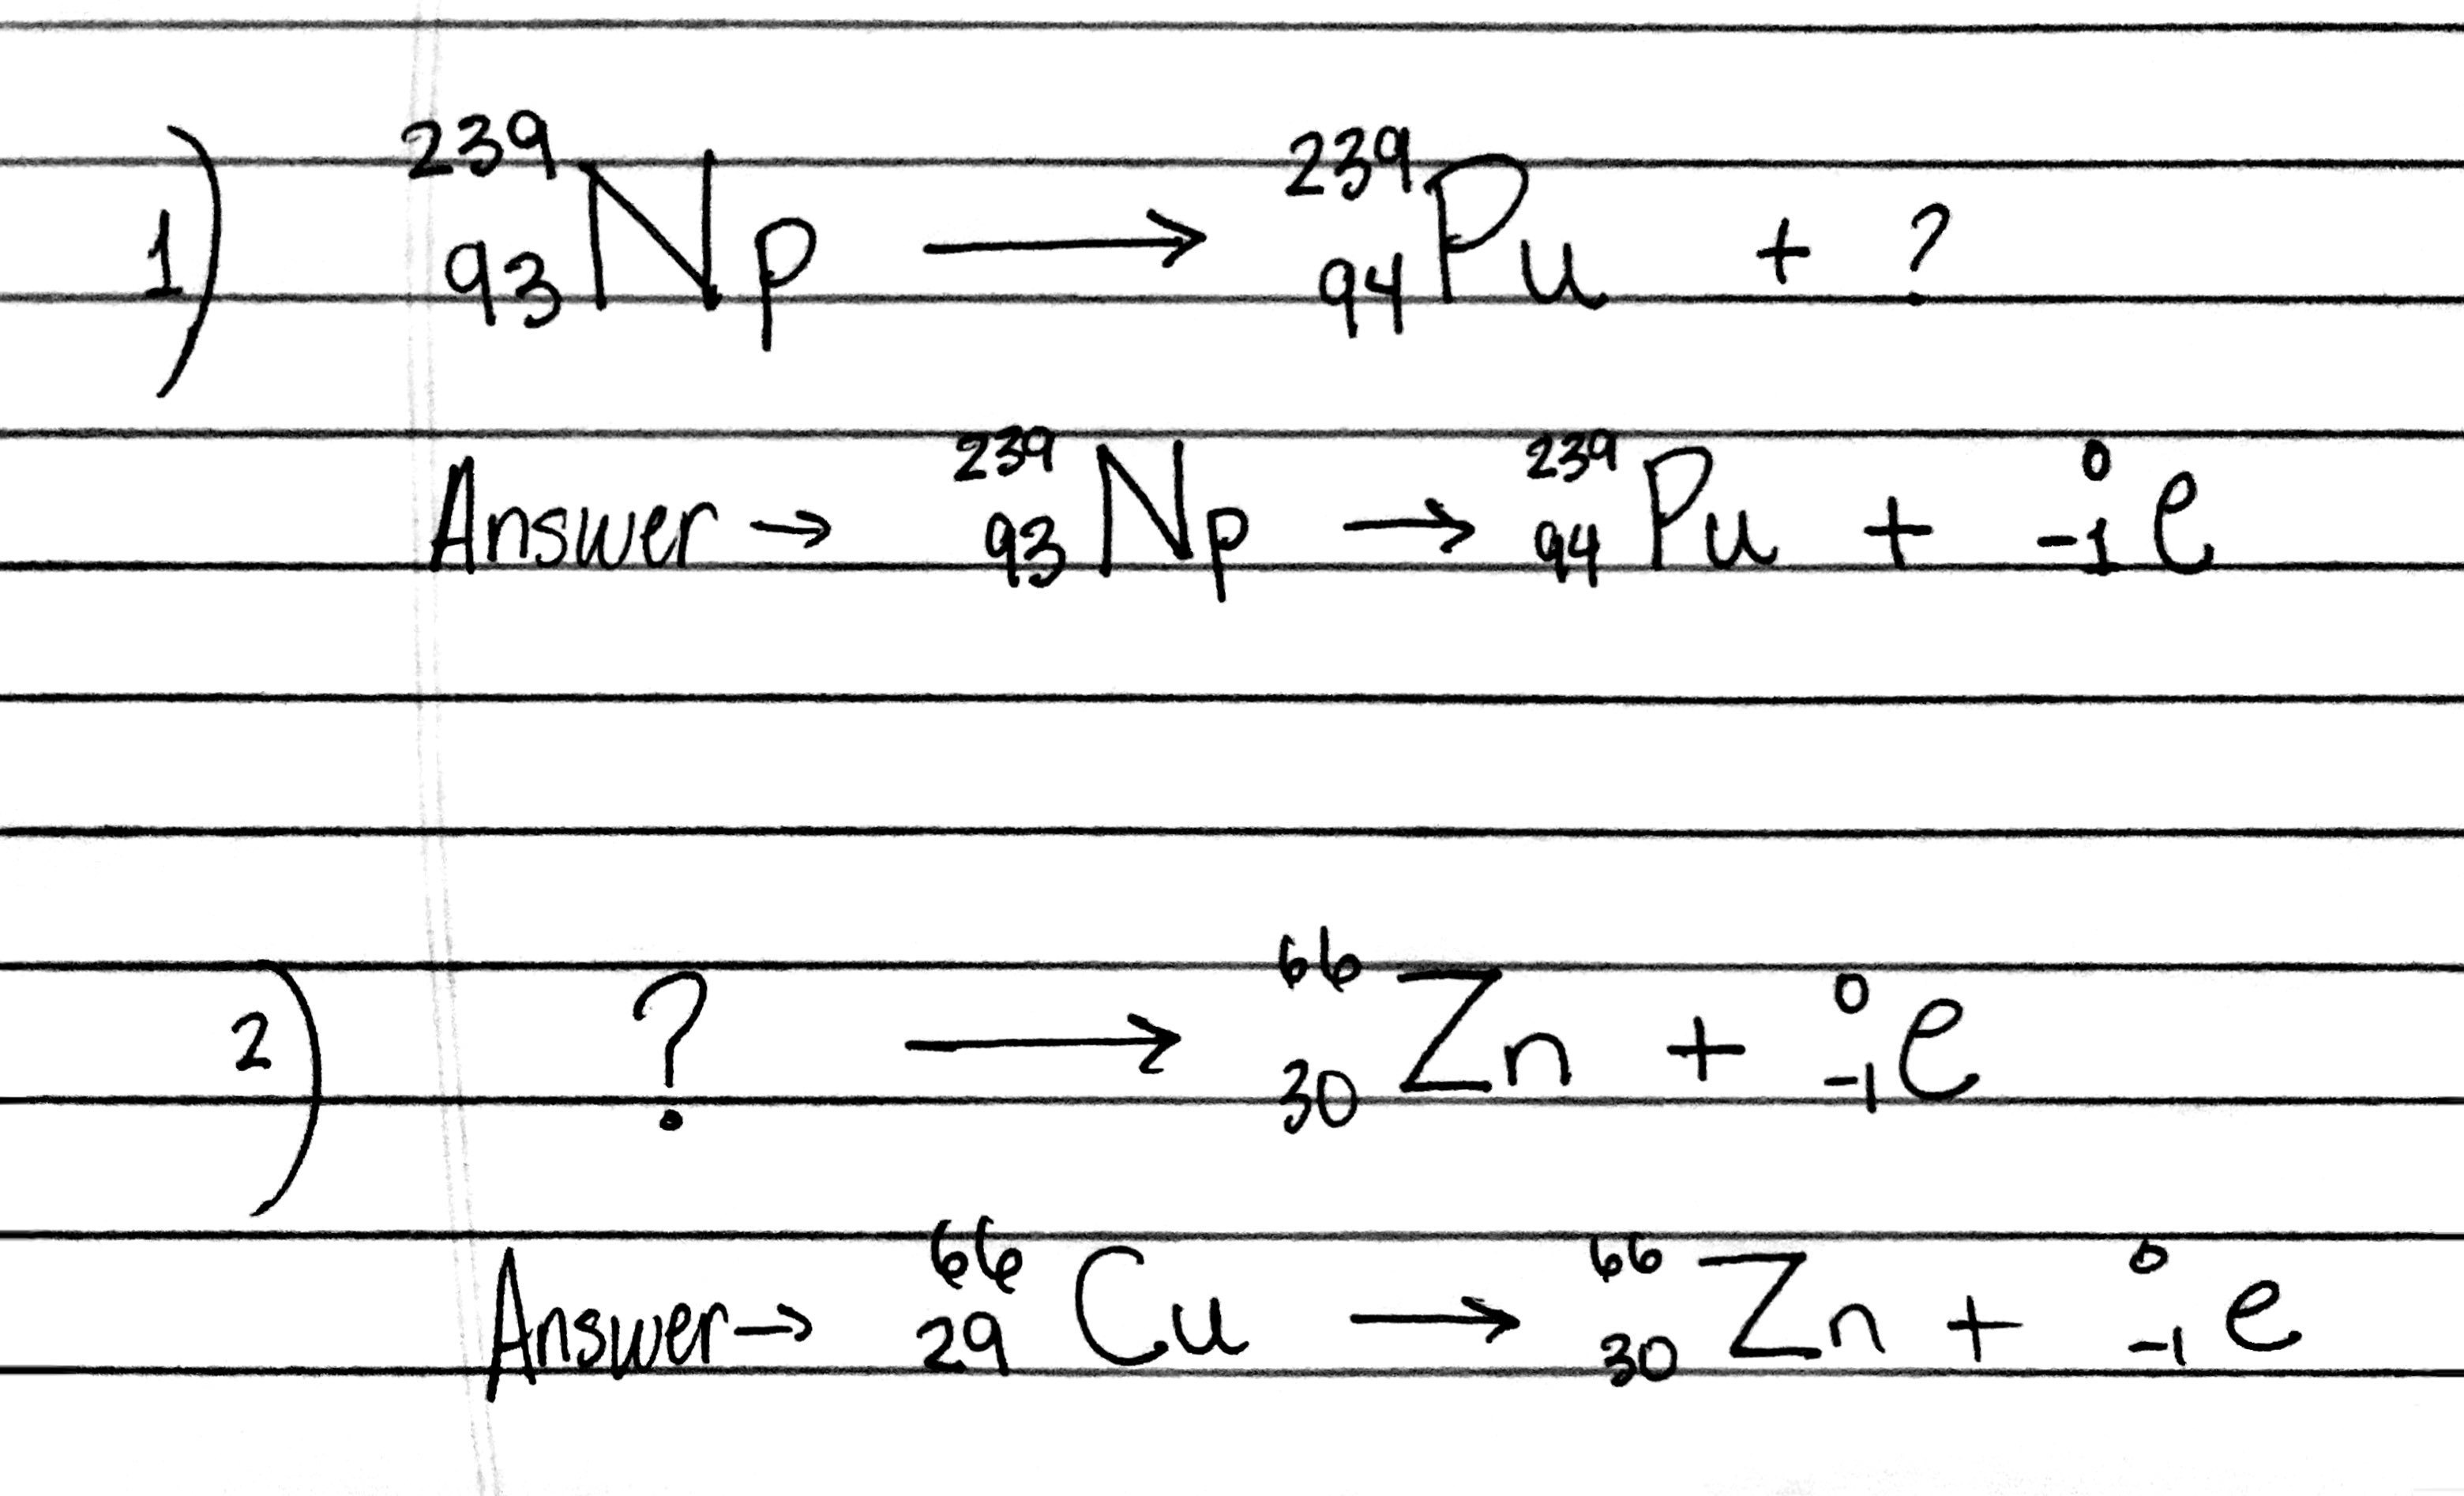 1) ²³⁹₉₃Np ⟶ ²³⁹₉₄Pu + ?
Answer → ²³⁹₉₃Np → ²³⁹₉₄Pu + ⁰₋₁e
2) ? ⟶ ⁶⁶₃₀Zn + ⁰₋₁e
Answer → ⁶⁶₂₉Cu ⟶ ⁶⁶₃₀Zn + ⁰₋₁e